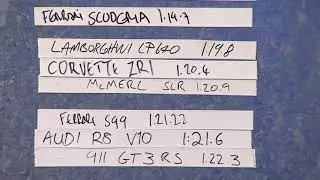 FERRARI SCUDERIA 1.19.7
LAMBORGHINI LP560 1.19.8
CORVETTE ZR1 1.20.4
McMERC SLR 1.20.9
FERRARI 599 1.21.22
AUDI R8 V10 1:21.6
911 GT3 RS 1.22.3